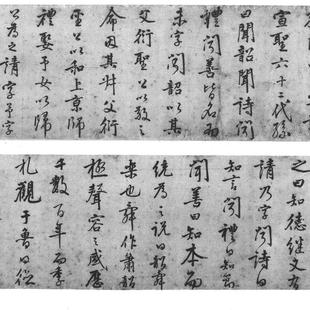 宣聖六十二代孫
曰聞韶聞詩聞
禮聞善皆名而
未字聞韶以其
父衍聖公以敬之
命因其叔父衍
聖公以和上京師
禮娶予女以歸
公為之請字予字
之曰知德繼又為
請乃字聞詩曰
知言聞禮曰知
聞善曰知本而
統為之說曰韶舜
樂也舜作簫韶
極聲容之盛歷
千數百年而季
札觀于魯曰